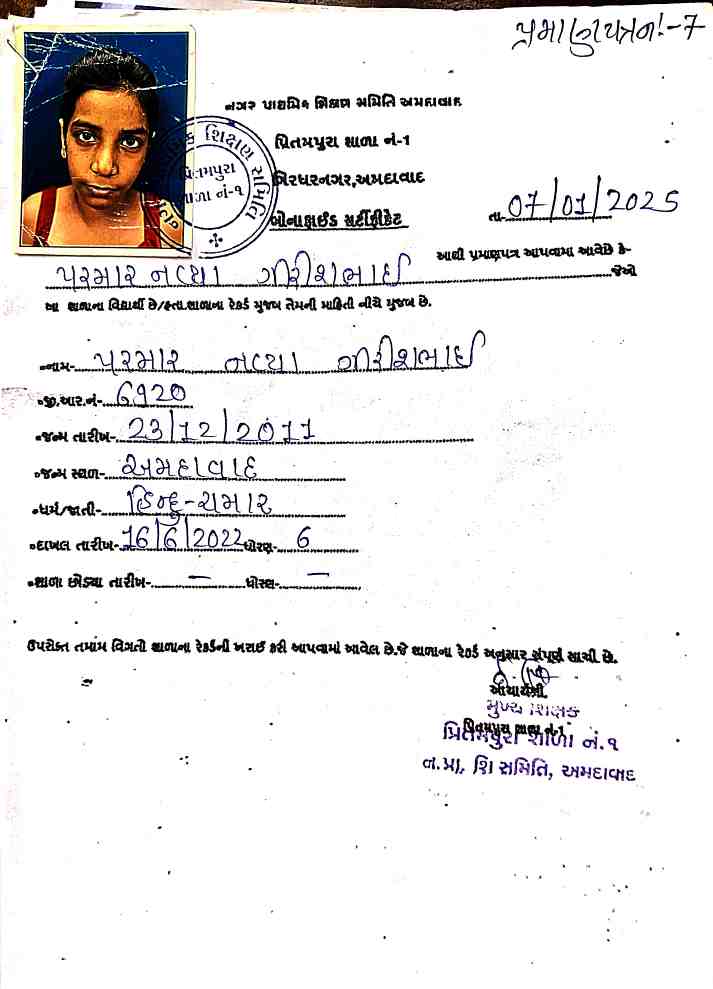 પ્રમાણપત્ર નં:-7
નગર પ્રાથમિક શિક્ષણ સમિતિ અમદાવાદ
પ્રિતમપુરા શાળા નં-1
ગિરધરનગર,અમદાવાદ
બોનાફાઈડ સર્ટીફીકેટ
તા-07/01/2025
શિક્ષણ સમિતિ
પ્રિતમપુરા
શાળા નં-૧
આથી પ્રમાણપત્ર આપવામા આવેછે કે-
પરમાર નવ્યા ગીરીશભાઈ જેઓ
આ શાળાના વિદ્યાર્થી છે/હતા.શાળાના રેકર્ડ મુજબ તેમની માહિતી નીચે મુજબ છે.
•નામ- પરમાર નવ્યા ગીરીશભાઈ
•જી.આર.નં- 6920
•જન્મ તારીખ- 23/12/2011
•જન્મ સ્થળ- અમદાવાદ
•ધર્મ/જાતી- હિન્દુ-ચમાર
•દાખલ તારીખ- 16/6/2022 ધોરણ- 6
•શાળા છોડ્યા તારીખ- — ધોરણ- —
ઉપરોક્ત તમામ વિગતો શાળાના રેકર્ડની ખરાઈ કરી આપવામાં આવેલ છે.જે શાળાના રેકર્ડ અનુસાર સંપૂર્ણ સાચી છે.
આચાર્યશ્રી,
મુખ્ય શિક્ષક
પ્રિતમપુરા શાળા નં.1
પ્રિતમપુરા શાળા નં.૧
ન.પ્રા. શિ સમિતિ, અમદાવાદ